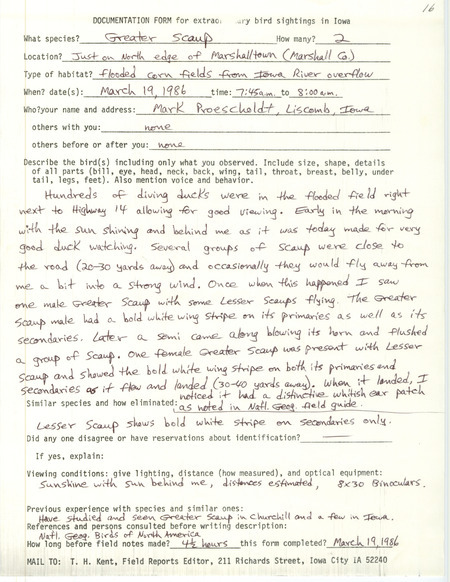 16
DOCUMENTATION FORM for extrao ary bird sightings in Iowa
What species? Greater Scaup How many? 2
Location? Just on North edge of Marshalltown (Marshall Co.)
Type of habitat? flooded corn fields from Iowa River overflow
When? date(s): March 19, 1986 time: 7:45 a.m. to 8:00 a.m.
Who? your name and address: Mark Proescholdt, Liscomb, Iowa
others with you: none
others before or after you: none
Describe the bird(s) including only what you observed. Include size, shape, details
of all parts (bill, eye, head, neck, back, wing, tail, throat, breast, belly, under
tail, legs, feet). Also mention voice and behavior.
Hundreds of diving ducks were in the flooded field right
next to Highway 14 allowing for good viewing. Early in the morning
with the sun shining and behind me as it was today made for very
good duck watching. Several groups of Scaup were close to
the road (20-30 yards away) and occasionally they would fly away from
me a bit into a strong wind. Once when this happened I saw
one male Greater Scaup with some Lesser Scaups flying. The Greater
Scaup male had a bold white wing stripe on its primaries as well as its
secondaries. Later a semi came along blowing its horn and flushed
a group of Scaup. One female Greater Scaup was present with Lesser
Scaup and showed the bold white wing stripe on both its primaries and
secondaries as it flew and landed (30-40 yards away). When it landed, I
noticed it had a distinctive whitish ear patch
Similar species and how eliminated: as noted in Natl. Geog. field guide.
Lesser Scaup shows bold white stripe on secondaries only.
Did any one disagree or have reservations about identification?
If yes, explain:
Viewing conditions: give lighting, distance (how measured), and optical equipment:
Sunshine with sun behind me, distances estimated, 8x30 Binoculars.
Previous experience with species and similar ones:
Have studied and seen Greater Scaup in Churchill and a few in Iowa.
References and persons consulted before writing description:
Natl. Geog. Birds of North America
How long before field notes made? 4½ hours this form completed? March 19, 1986
MAIL TO: T. H. Kent, Field Reports Editor, 211 Richards Street, Iowa City IA 52240